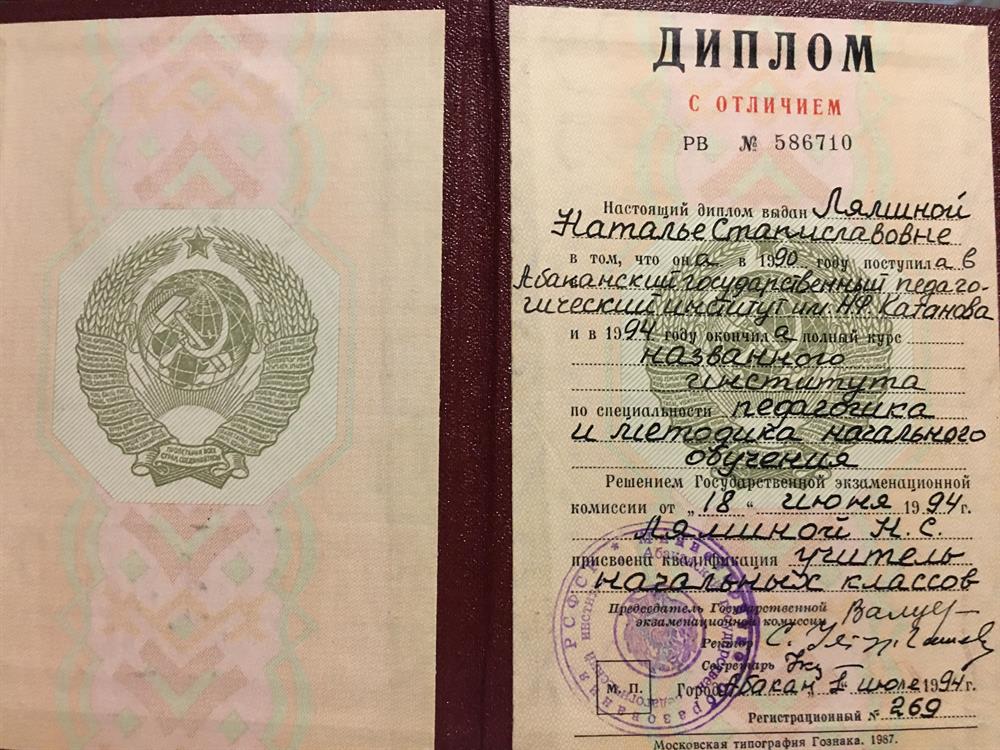 ПРОЛЕТАРИИ ВСЕХ
СТРАН, СОЕДИНЯЙТЕСЬ!
ДИПЛОМ
С ОТЛИЧИЕМ
РВ № 586710
Настоящий диплом выдан Ляминой
Наталье Станиславовне
в том, что она в 1990 году поступила в
Абаканский государственный педаго-
гический институт им. Н.Ф. Катанова
и в 1994 году окончила полный курс
названного
института
по специальности педагогика
и методика начального
обучения
Решением Государственной экзаменационной
комиссии от „18“ июня 1994г.
Ляминой Н.С.
присвоена квалификация учитель
начальных классов
Председатель Государственной
экзаменационной комиссии
Ректор
Секретарь
М. П. Город Абакан, „1“ июле 1994г.
Регистрационный № 269
Московская типография Гознака. 1987.